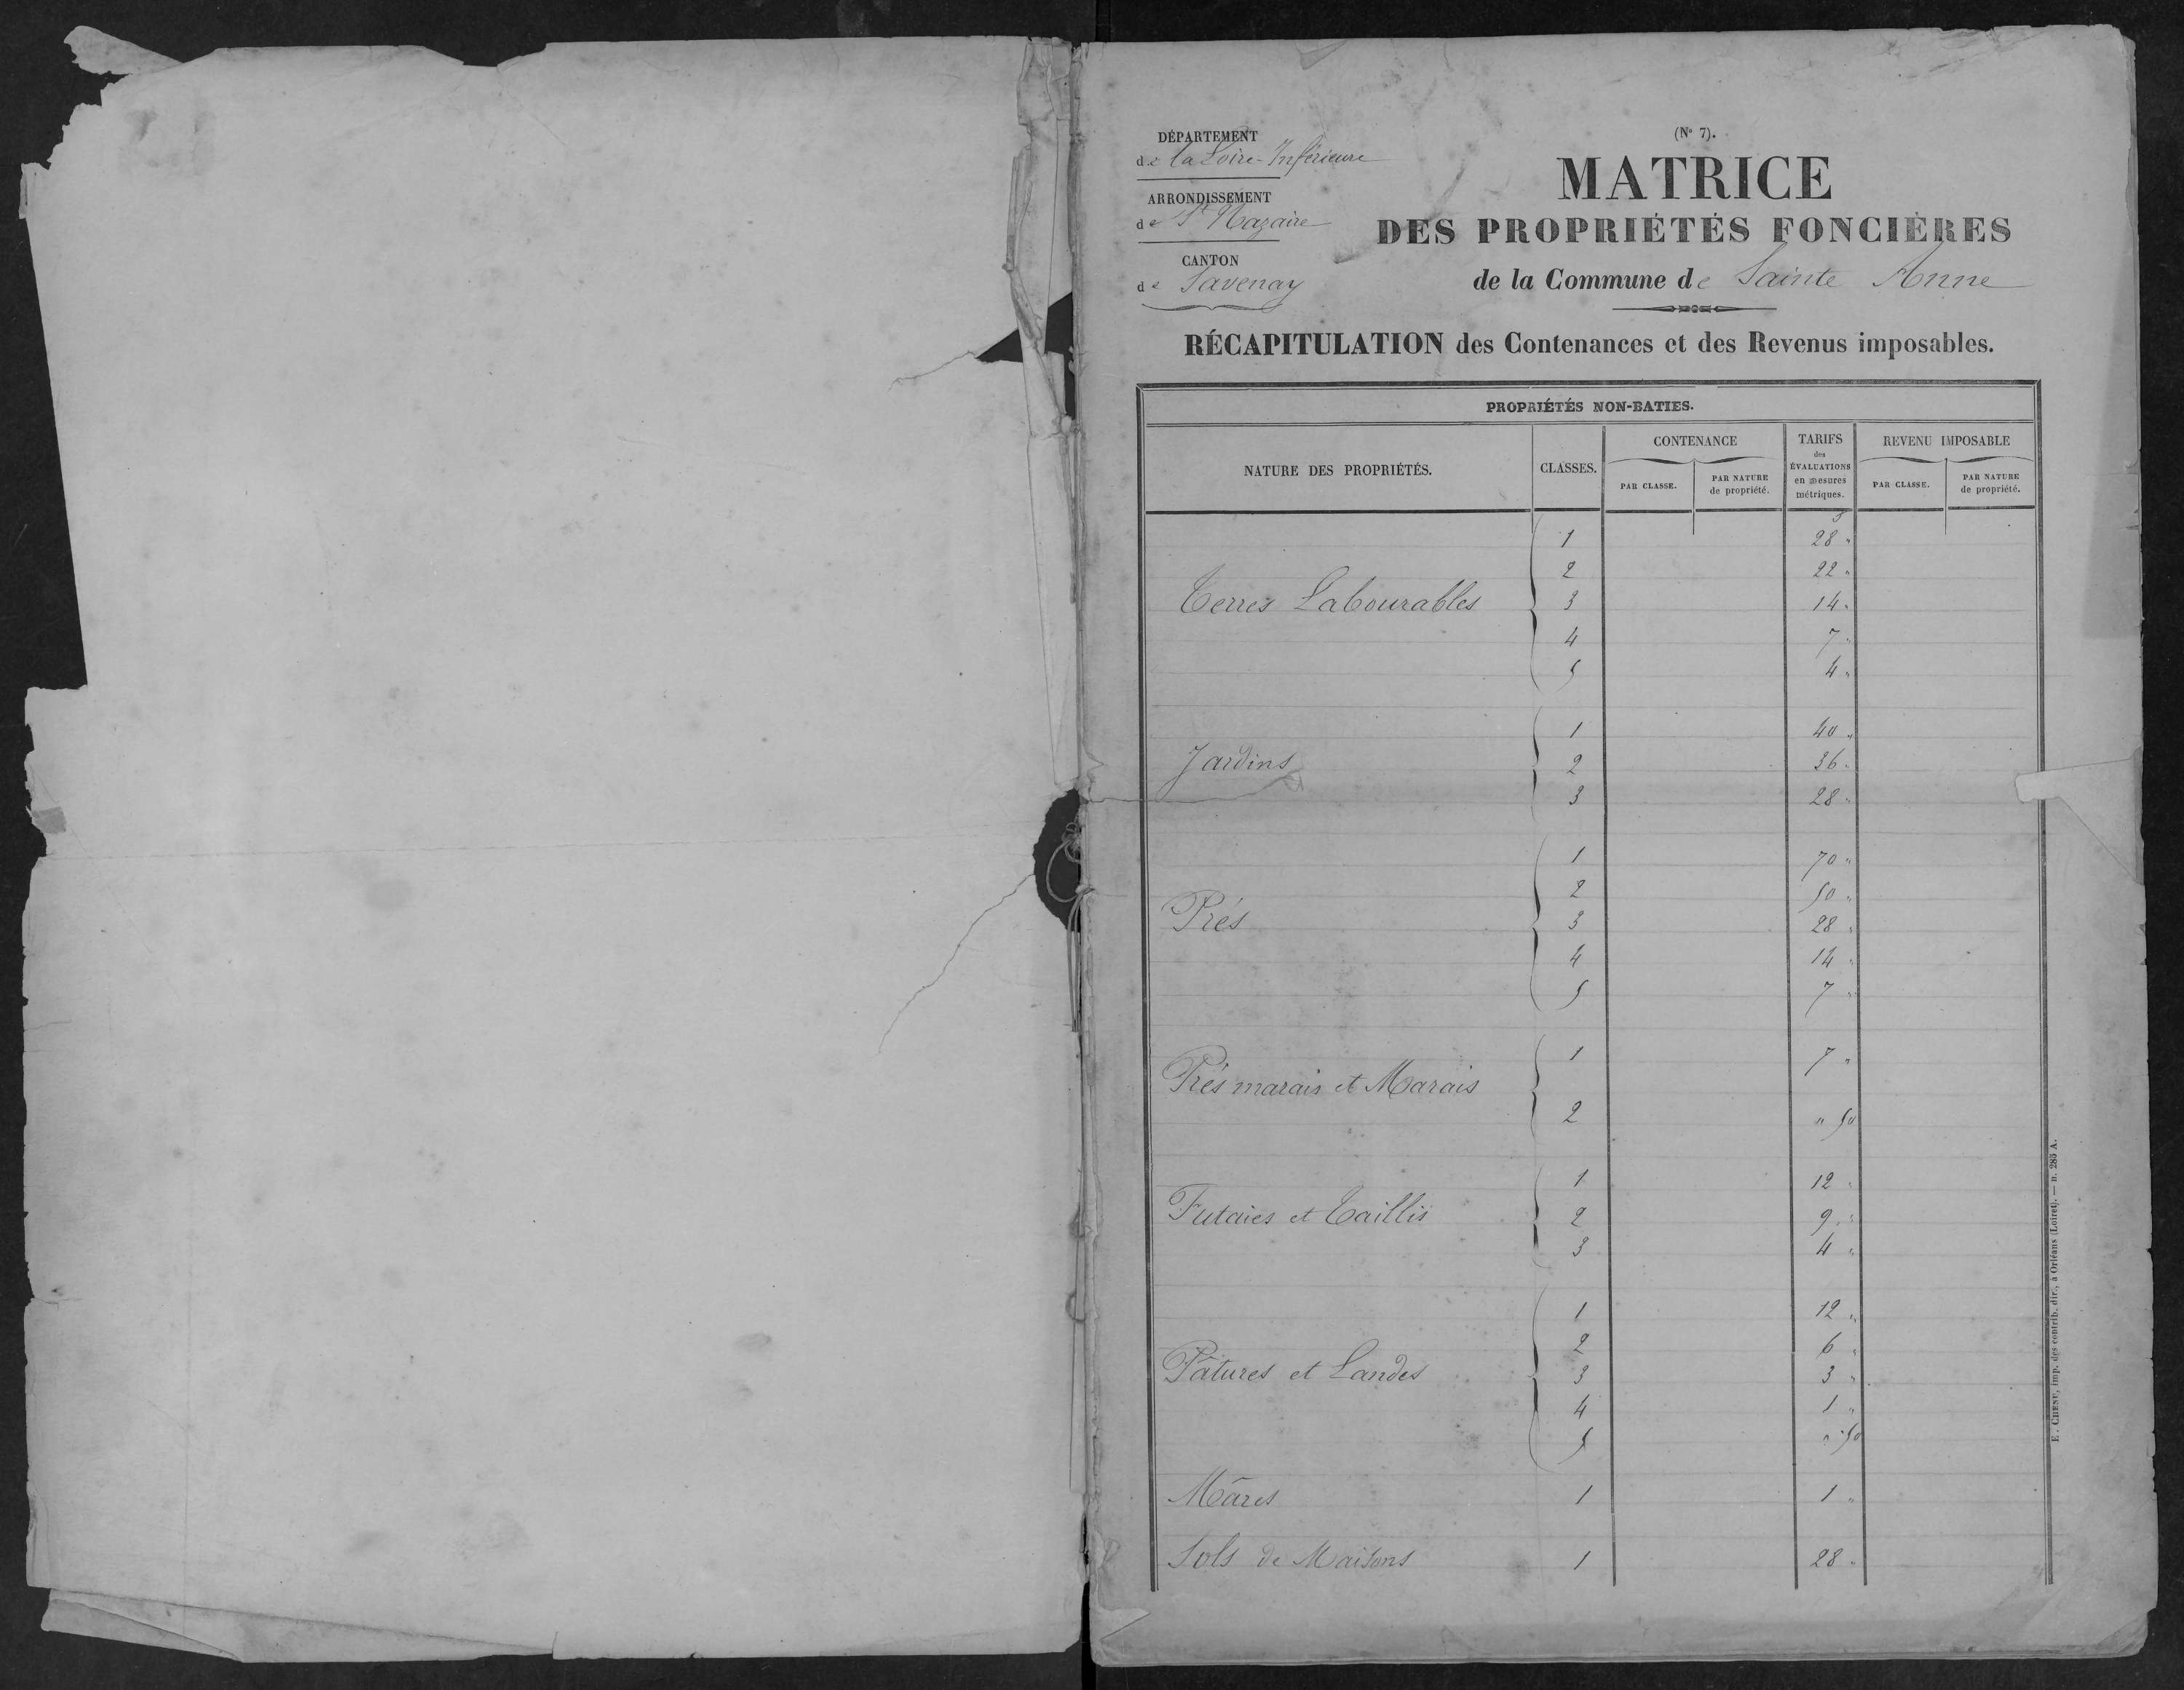 DÉPARTEMENT
de la Loire-Inférieure
ARRONDISSEMENT
de St Nazaire
CANTON
de Savenay
(N° 7).
MATRICE
DES PROPRIÉTÉS FONCIÈRES
de la Commune de Sainte Anne
RÉCAPITULATION des Contenances et des Revenus imposables.
PROPRIÉTÉS NON-BATIES.
NATURE DES PROPRIÉTÉS. CLASSES. CONTENANCE TARIFS des ÉVALUATIONS en mesures métriques. REVENU IMPOSABLE
PAR CLASSE. PAR NATURE de propriété. PAR CLASSE. PAR NATURE de propriété.
1 28 "
2 22 "
Terres Labourables 3 14 "
4 7 "
5 4 "
1 40 "
Jardins 2 36 "
3 28 "
1 70 "
2 50 "
Prés 3 28 "
4 14 "
5 7 "
1 7 "
Prés marais et Marais
2 " 50
1 12 "
Futaies et Taillis 2 9 "
3 4 "
1 12 "
2 6 "
Pâtures et Landes 3 3 "
4 1 "
5 " 50
Mâres 1 1 "
Sols de Maisons 1 28 "
E. CHENU, imp. des contrib. dir., à Orléans (Loiret). — B. 285 A.